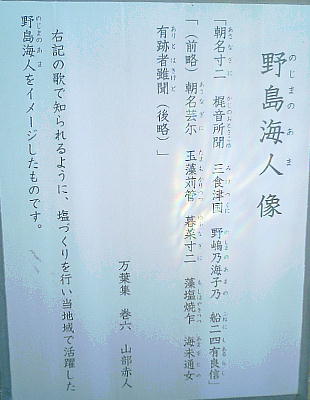 野島海人像
「朝名寸二 梶音所聞 三食津国 野嶋乃海子乃 船二四有良信」
「（前略）朝名芸尓 玉藻苅管 暮菜寸二 藻塩焼乍 海末通女
有跡者雖聞（後略）」
万葉集 巻六 山部赤人
右記の歌で知られるように、塩づくりを行い当地域で活躍した
野島海人をイメージしたものです。